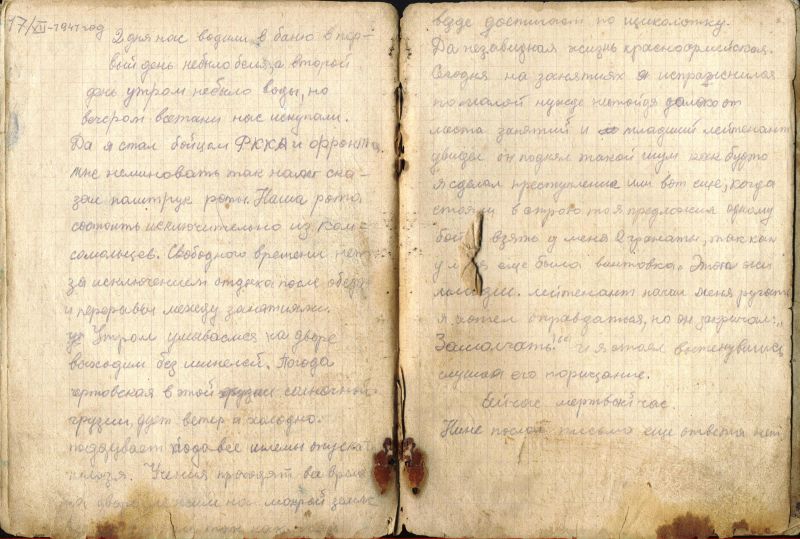 17/XII-1941 год
2 дня нас водили в баню в пер-
вый день небыло белья, а второй
день утром небыло воды, но
вечером всетаки нас искупали.
Да я стал бойцом РККА и фронта
мне неминовать так нам ска-
зал политрук роты. Наша рота
состоить исключительно из ком-
сомольцев. Свободного времени нет
за исключением отдыха после обеда
и перерывы между занятиями.
Утром умываемся на дворе
выходим без шинелей. Погода
чертовская в этой солнечной
грузии, дует ветер и холодно.
поддувает хода все шлемы опускат
Учения проходят все время
на дворе лежим на мокрой земле
так как
везде достигает по щиколотку.
Да незавидная жизнь красноармейская.
Сегодня на занятиях я испражнился
по малой нужде далеко от
места занятий и младший лейтенант
увидел он поднял такой шум как будто
я сделал преступление или вот еще, когда
стояли в строю то я предложил одному
взять у меня 2 гранаты, так как
у еще была винтовка. Этот же
лейтенант начал меня ругать
я хотел оправдаться, но он закричал:„
Замолчать!“ и я стоял вытенувшись
слушая его порицание.
Сейчас мертвый час.
Нине послал письмо еще ответа нет